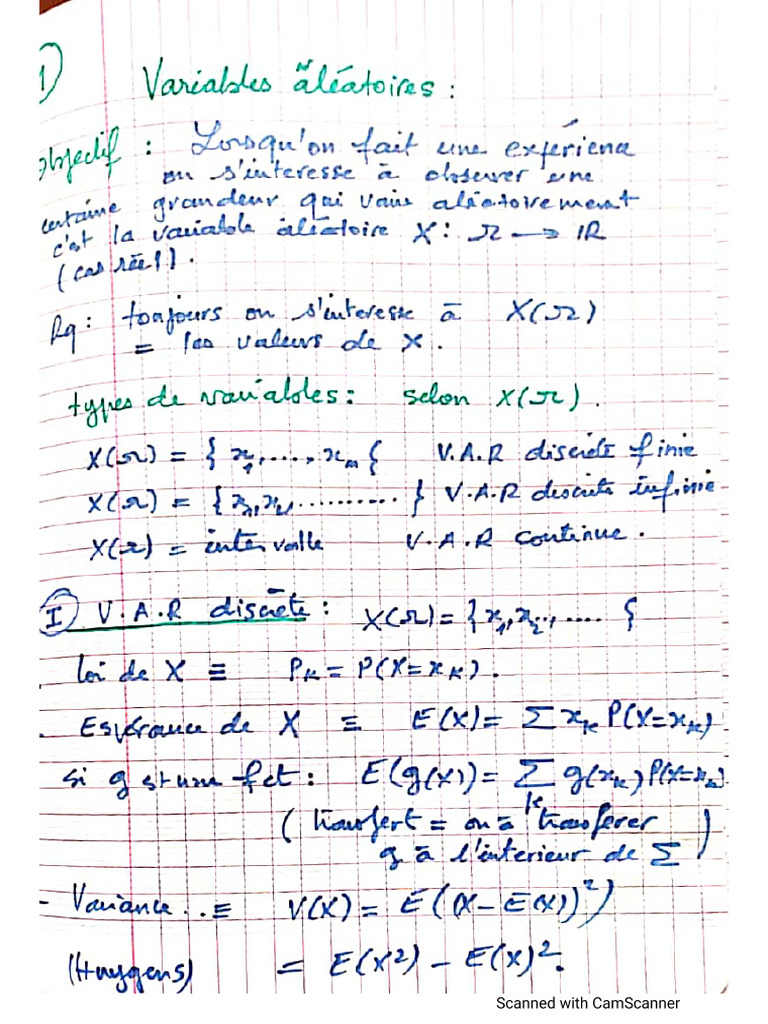 1) Variables aléatoires :
objectif : Lorsqu'on fait une experience
on s'interesse à observer une
certaine grandeur qui varie aléatoirement
c'est la variable aléatoire X : Ω → IR
(cas réel).
Rq : toujours on s'interesse à X(Ω)
= les valeurs de X.
types de variables : selon X(Ω).
X(Ω) = { x₁, ...., xₙ } V.A.R discrète finie
X(Ω) = { x₁, x₂, .......... } V.A.R discrète infinie
X(Ω) = intervalle V.A.R continue.
I) V.A.R discrète : X(Ω) = { x₁, x₂, ..... }
. Loi de X ≡ Pₖ = P(X = xₖ).
. Espérance de X ≡ E(X) = Σ xₖ P(X = xₖ)
si g est une fct : E(g(X)) = Σₖ g(xₖ) P(X = xₖ)
( transfert = on a transférer
g à l'interieur de Σ )
- Variance .. ≡ V(X) = E((X - E(X))²)
(Huygens) = E(X²) - E(X)².
Scanned with CamScanner